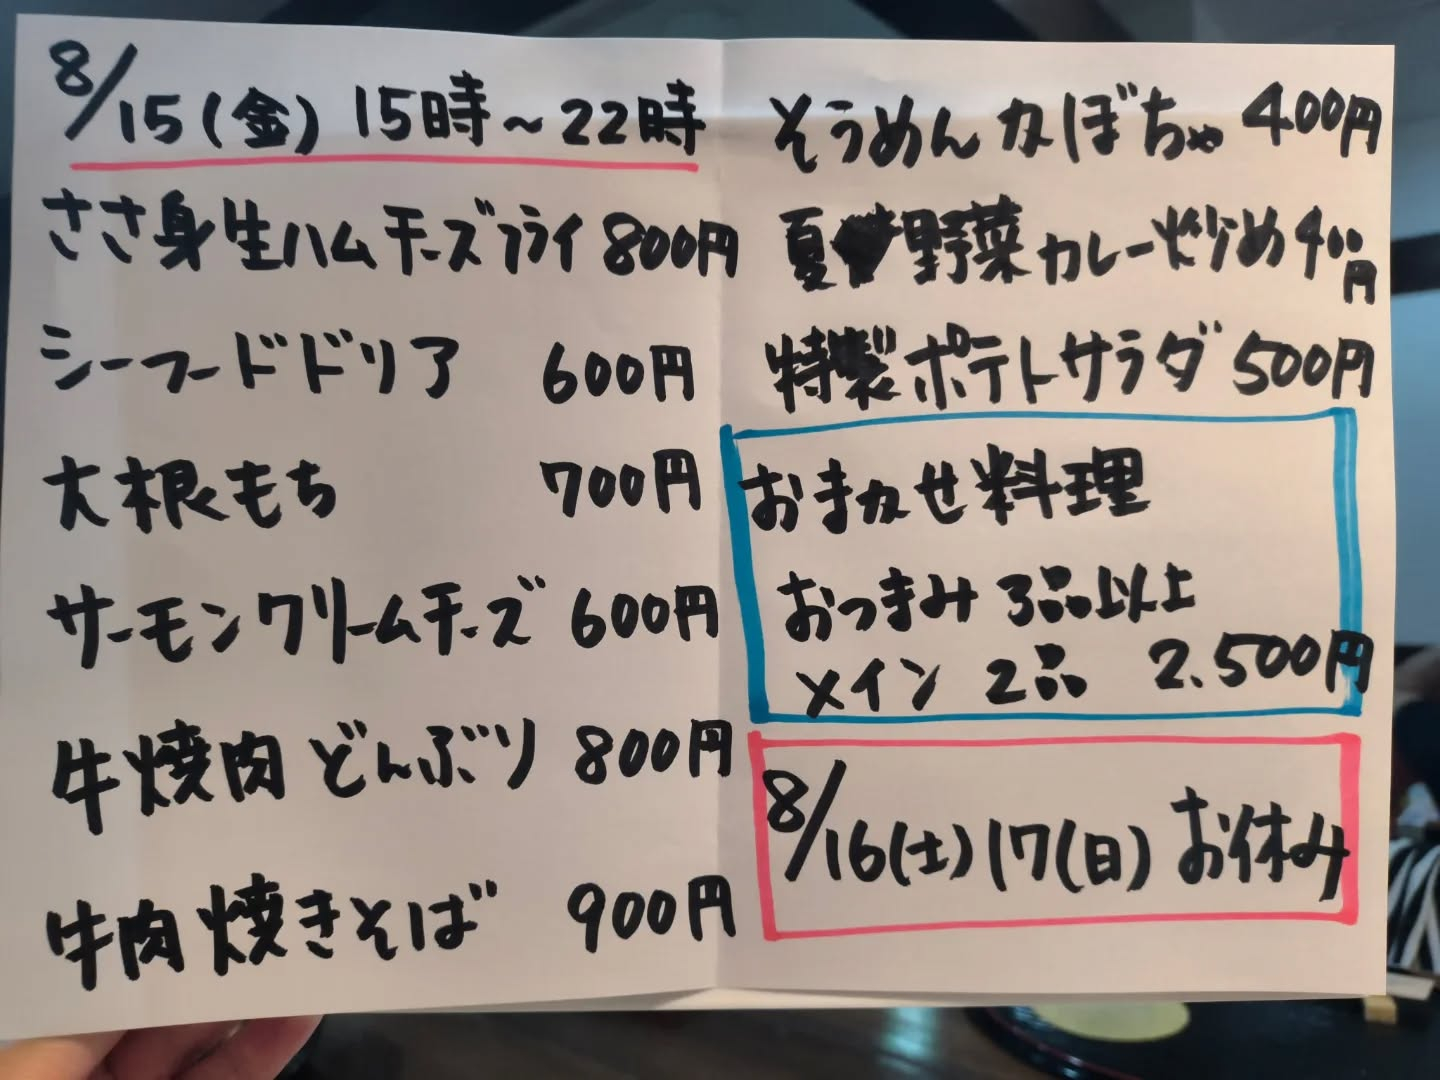 8/15(金) 15時~22時
ささ身生ハムチーズフライ 800円
シーフードドリア 600円
大根もち 700円
サーモンクリームチーズ 600円
牛焼肉どんぶり 800円
牛肉焼きそば 900円
そうめんかぼちゃ 400円
夏野菜カレー炒め 400円
特製ポテトサラダ 500円
おまかせ料理
おつまみ 3品以上
メイン 2品 2.500円
8/16(土)17(日)お休み